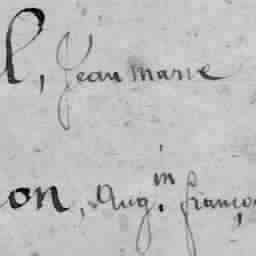 l, Jean marie
on, Aug.in franço